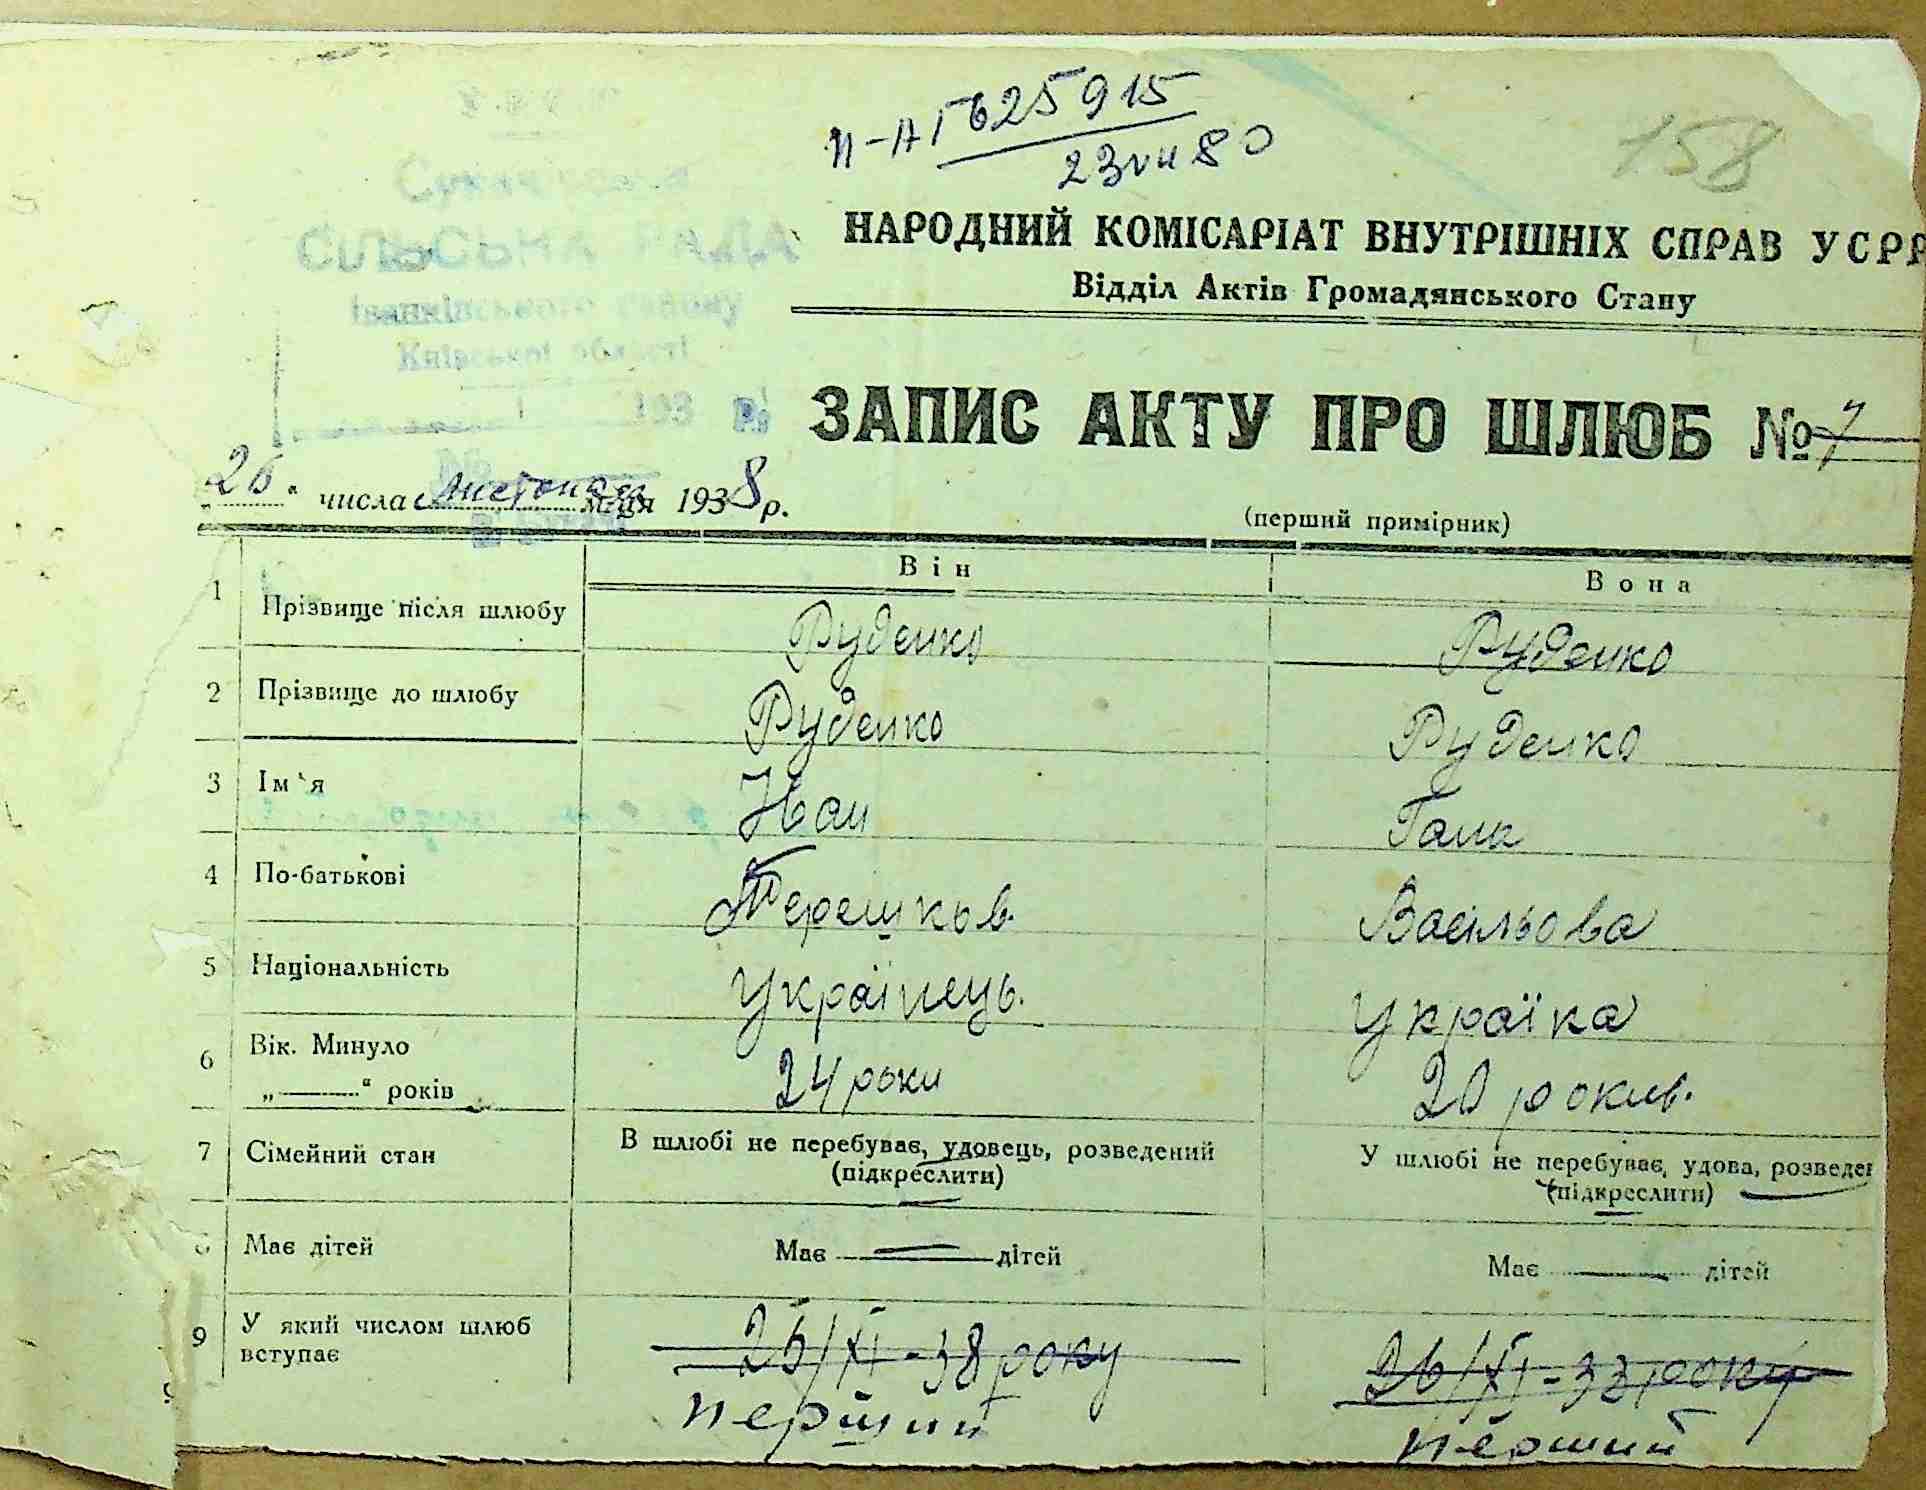 II-АГ 625915
23 VII 80
158
СІЛЬСЬКА РАДА
Іванківського району
Київської області
193 р.
НАРОДНИЙ КОМІСАРІАТ ВНУТРІШНІХ СПРАВ УСРР
Відділ Актів Громадянського Стану
ЗАПИС АКТУ ПРО ШЛЮБ № 7
„26“ числа листопада м-ця 1938 р.
(перший примірник)
Він Вона
1 Прізвище після шлюбу Руденко Руденко
2 Прізвище до шлюбу Руденко Руденко
3 Ім'я Иван Галя
4 По-батькові Терешков. Васільова
5 Національність Українець. Українка
6 Вік. Минуло „ “ років 24 роки 20 рокив.
7 Сімейний стан В шлюбі не перебуває, удовець, розведений (підкреслити) У шлюбі не перебуває, удова, розведен (підкреслити)
8 Має дітей Має — дітей Має — дітей
9 У який числом шлюб вступає 26/XI-38 року 26/XI-33 року
перший перший